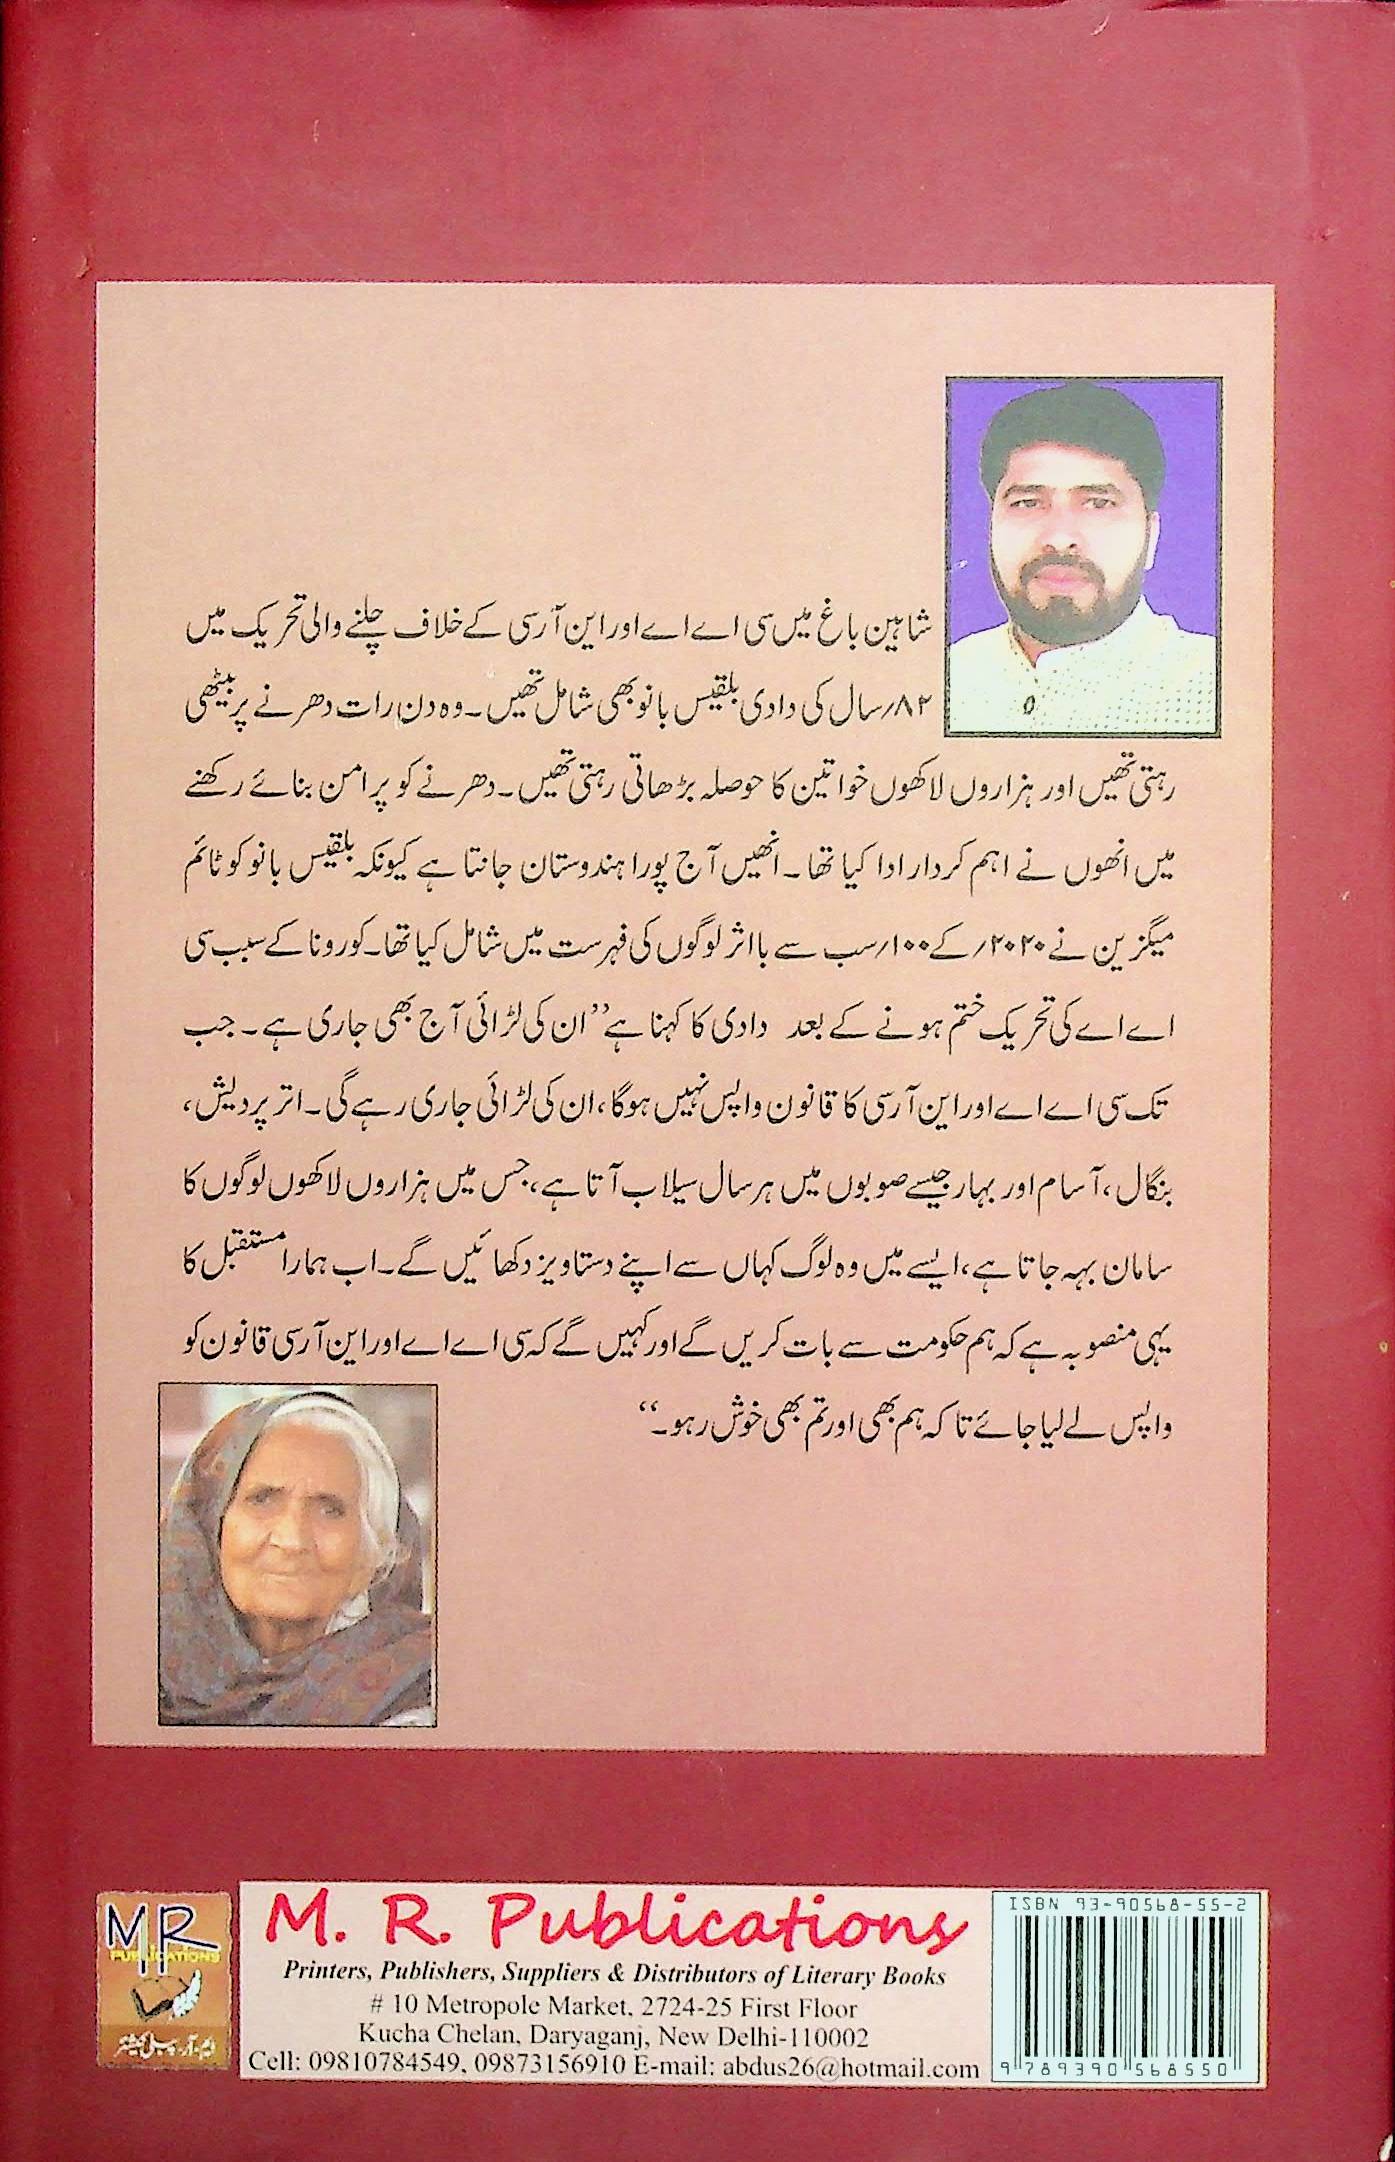 شاہین باغ میں سی اے اے اور این آر سی کے خلاف چلنے والی تحریک میں
۸۲؍سال کی دادی بلقیس بانو بھی شامل تھیں۔ وہ دن رات دھرنے پر بیٹھی
رہتی تھیں اور ہزاروں لاکھوں خواتین کا حوصلہ بڑھاتی رہتی تھیں۔ دھرنے کو پرامن بنائے رکھنے
میں انھوں نے اہم کردار ادا کیا تھا۔ انھیں آج پورا ہندوستان جانتا ہے کیونکہ بلقیس بانو کو ٹائم
میگزین نے ۲۰۲۰؍ کے ۱۰۰؍سب سے بااثر لوگوں کی فہرست میں شامل کیا تھا۔ کورونا کے سبب سی
اے اے کی تحریک ختم ہونے کے بعد دادی کا کہنا ہے ’’ان کی لڑائی آج بھی جاری ہے۔ جب
تک سی اے اے اور این آر سی کا قانون واپس نہیں ہوگا، ان کی لڑائی جاری رہے گی۔ اتر پردیش،
بنگال، آسام اور بہار جیسے صوبوں میں ہر سال سیلاب آتا ہے، جس میں ہزاروں لاکھوں لوگوں کا
سامان بہہ جاتا ہے، ایسے میں وہ لوگ کہاں سے اپنے دستاویز دکھائیں گے۔ اب ہمارا مستقبل کا
یہی منصوبہ ہے کہ ہم حکومت سے بات کریں گے اور کہیں گے کہ سی اے اے اور این آر سی قانون کو
واپس لے لیا جائے تا کہ ہم بھی اور تم بھی خوش رہو۔‘‘
MR
PUBLICATIONS
ایم۔آر۔ پبلی کیشنز
M. R. Publications
Printers, Publishers, Suppliers & Distributors of Literary Books
# 10 Metropole Market, 2724-25 First Floor
Kucha Chelan, Daryaganj, New Delhi-110002
Cell: 09810784549, 09873156910 E-mail: abdus26@hotmail.com
ISBN 93-90568-55-2
9 789390 568550